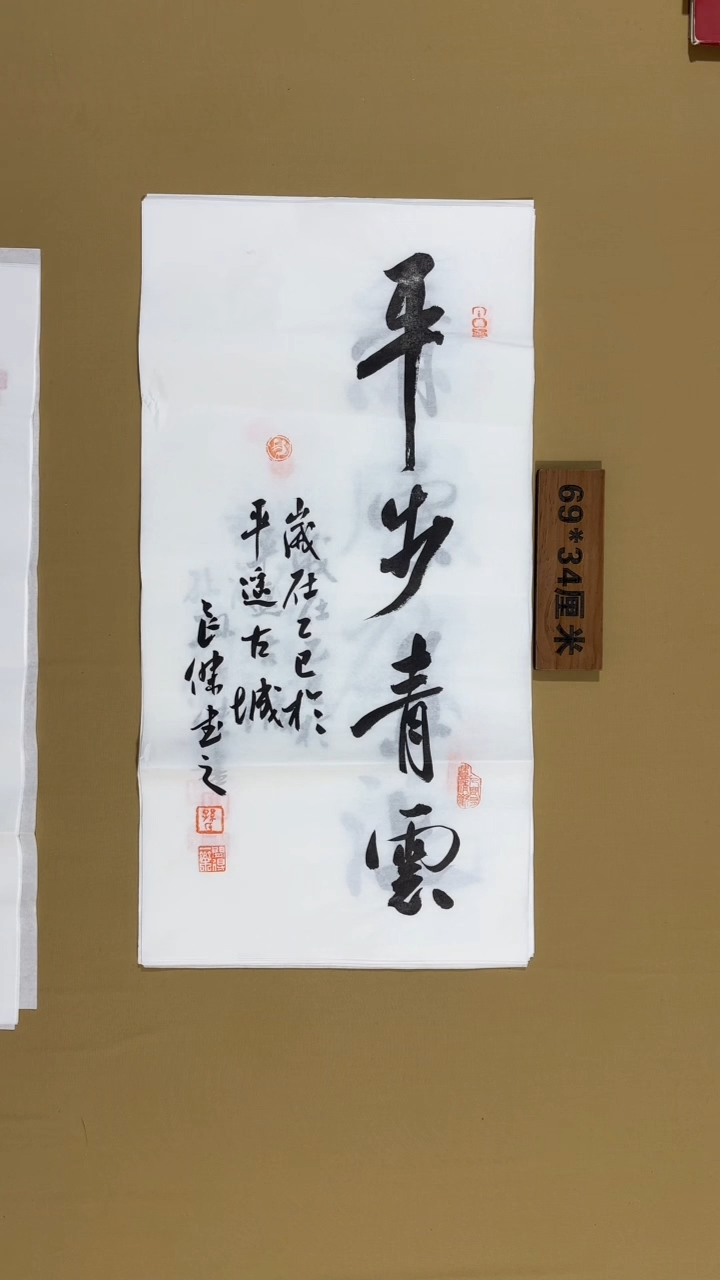 平步青雲
歲在乙巳於
平遥古城
長傑书之
69*34厘米